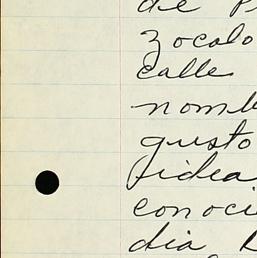 de P
zocalo
calle
nomb
gusto
fidea
conoci
dia